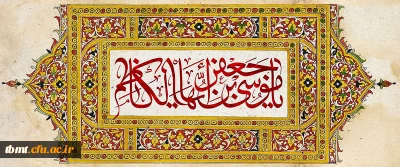 يا موسى بن جعفر أيها الكاظم
tbmt.cfu.ac.ir